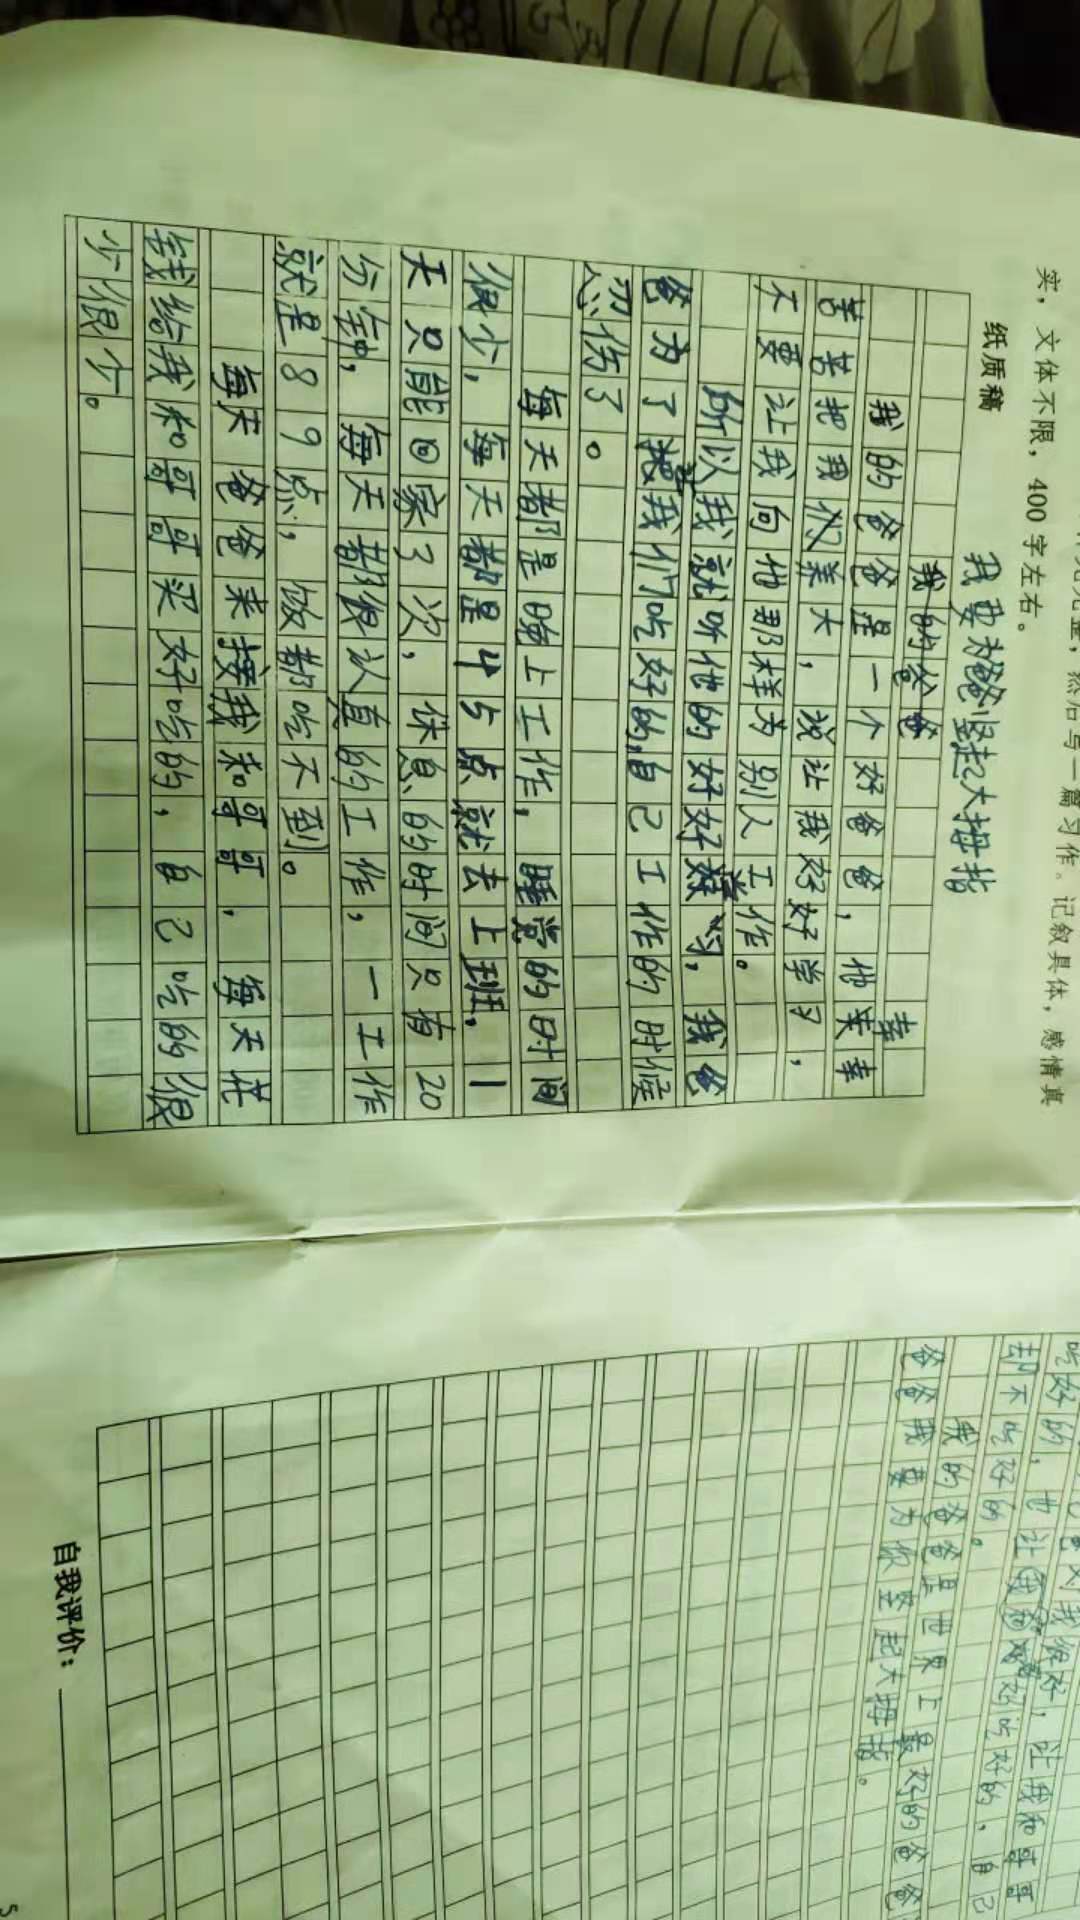 实，文体不限，400字左右。
纸质稿
我要为爸爸竖起大拇指
我的爸爸
我的爸爸是一个好爸爸，他辛辛
苦苦把我们养大，说让我好好学习，
不要让我向他那样为别人工作。
所以我就听他的好好学习，我爸
爸为了让我们吃好的，自己工作的时候
忍伤了。
每天都是晚上工作，睡觉的时间
很少，每天都是45点就去上班，1
天只能回家3次，休息的时间只有20
分钟，每天都很认真的工作，一工作
就是89点，饭都吃不到。
每天爸爸来接我和哥哥，每天花
钱给我和哥哥买好吃的，自己吃的很
少很少。
对我很好，让我和哥哥
吃好的，也让
好吃好的，自己
却不吃好的。
我的爸爸是世界上最好的爸爸
爸爸我要为你竖起大拇指。
自我评价：